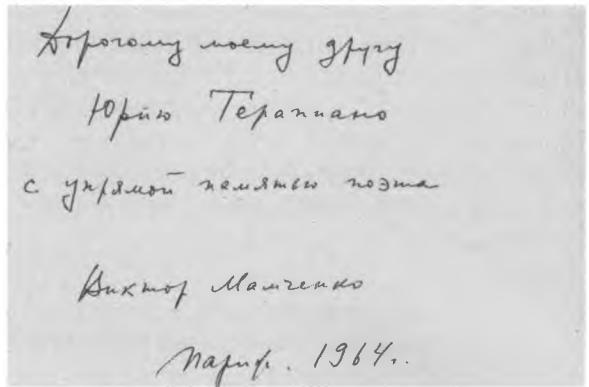 Дорогому моему другу
Юрию Терапиано
с упрямой памятью поэта
Виктор Мамченко
Париж. 1964 г.